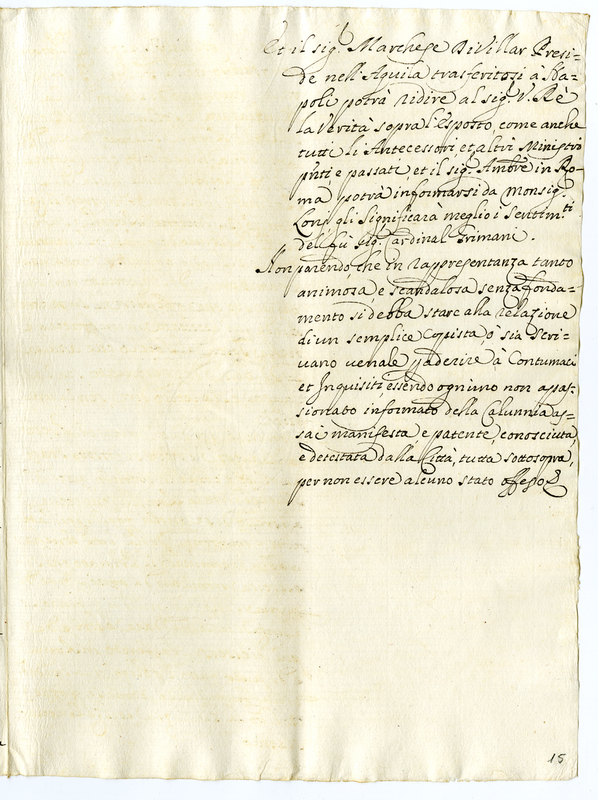 Et il sig.r Marchese Di Villar Presi=
de nell'Aquila trasferitosi à Na=
poli potrà ridire al sig.r V. Rè
la Verità sopra l'esposto, come anche
tutti li Antecessori, et altri Ministri
pñti, e passati, et il sig.r Ambre in Ro=
ma potrà informarsi da Monsig.r
gli significarà meglio i sentim.ti
del fù sig. Cardinal Grimani.
Non parendo che in rappresentanza tanto
animosa, e scandalosa senza fonda=
mento si debba stare alla relazione
di un semplice Copista, ò sia Scri=
vano venale, aderire à Contumaci
et Inquisiti, essendo ogni uno non apas=
sionato informato della Calunnia as=
sai manifesta, e patente, conosciuta,
e detestata dalla Città, tutta sottosopra,
per non essere alcuno stato offeso
15